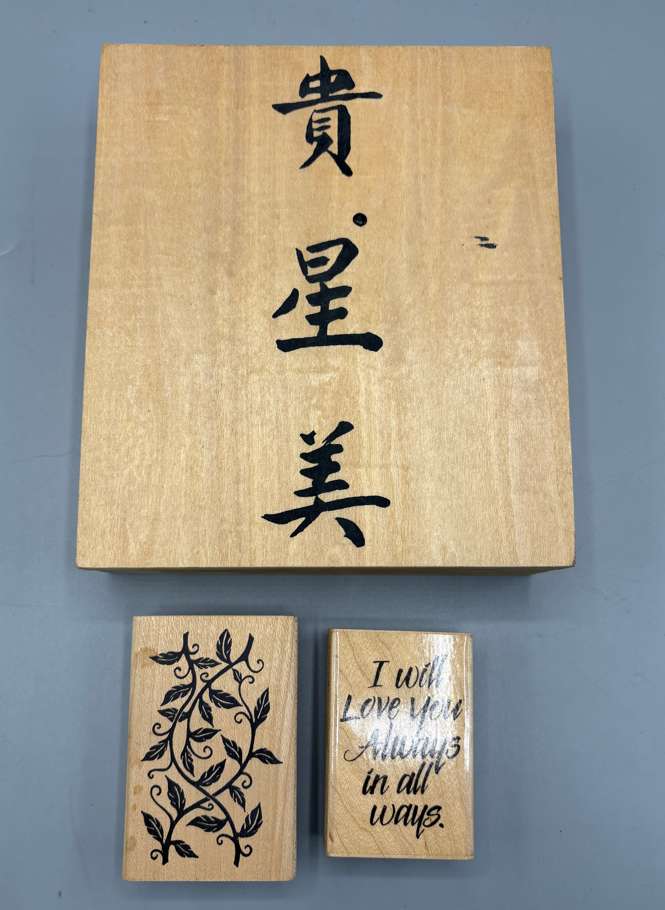 貴
・
星
美
I will
Love you
Always
in all
ways.